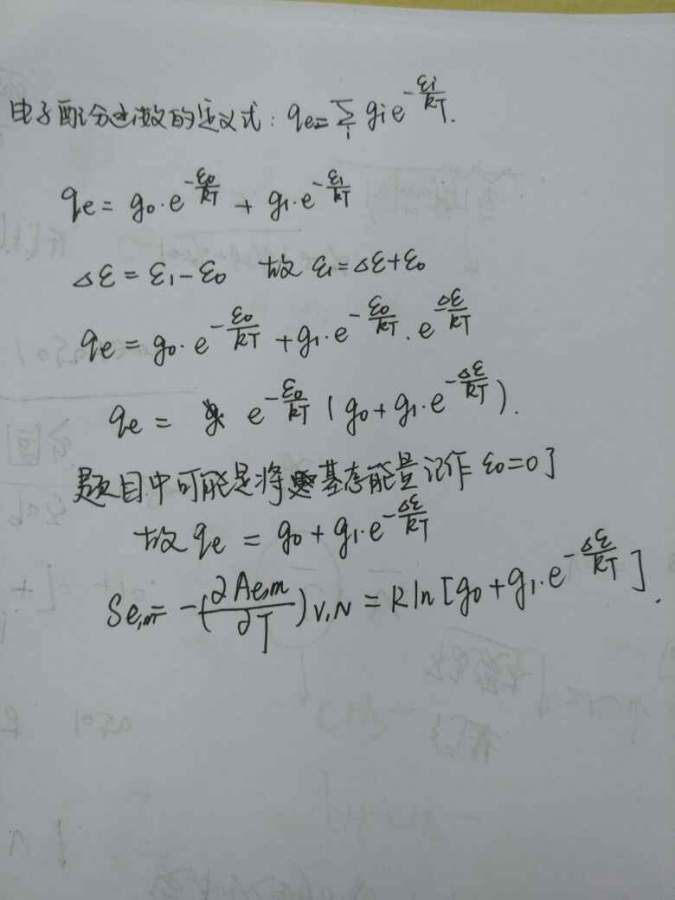 电子配分函数的定义式: qe=∑i gi e^(-εi/kT).
qe = g0·e^(-ε0/kT) + g1·e^(-ε1/kT)
Δε = ε1-ε0 故 ε1=Δε+ε0
qe = g0·e^(-ε0/kT) + g1·e^(-ε0/kT)·e^(-Δε/kT)
qe = e^(-ε0/kT) (g0+g1·e^(-Δε/kT)).
题目中可能是将基态能量记作 ε0=0了
故 qe = g0+g1·e^(-Δε/kT)
Se,m = -(∂Ae,m/∂T)V,N = R ln[g0+g1·e^(-Δε/kT)].